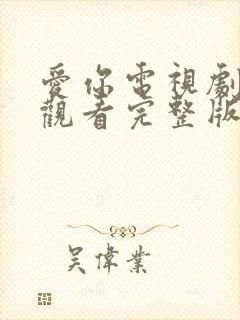 愛你電視劇
觀看完整版
吳偉業